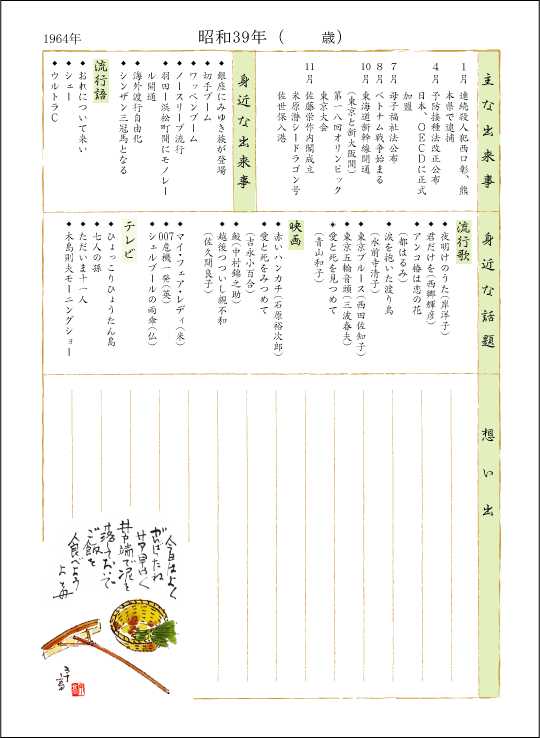 1964年
昭和39年（　　歳）
主な出来事
1月 連続殺人犯西口彰、熊
本県で逮捕
4月 予防接種法改正公布
日本、OECDに正式
加盟
7月 母子福祉法公布
8月 ベトナム戦争始まる
10月 東海道新幹線開通
（東京と新大阪間）
第一八回オリンピック
東京大会
11月 佐藤栄作内閣成立
米原潜シードラゴン号
佐世保入港
身近な出来事
◆銀座にみゆき族が登場
◆切手ブーム
◆ワッペンブーム
◆ノースリーブ流行
◆羽田ー浜松町間にモノレー
ル開通
◆海外渡行自由化
◆シンザン三冠馬となる
流行語
◆おれについて来い
◆シェー
◆ウルトラC
身近な話題
流行歌
◆夜明けのうた（岸洋子）
◆君だけを（西郷輝彦）
◆アンコ椿は恋の花
（都はるみ）
◆涙を抱いた渡り鳥
（水前寺清子）
◆東京ブルース（西田佐知子）
◆東京五輪音頭（三波春夫）
◆愛と死を見つめて
（青山和子）
映画
◆赤いハンカチ（石原裕次郎）
◆愛と死をみつめて
（吉永小百合）
◆鮫（中村錦之助）
◆越後つついし親不知
（佐久間良子）
◆マイ・フェア・レディ（米）
◆007危機一発（英）
◆シェルブールの雨傘（仏）
テレビ
◆ひょっこりひょうたん島
◆七人の孫
◆ただいま十一人
◆木島則夫モーニングショー
想い出
今日はよく
がんばったね
井戸端で泥を
落しておいで
ご飯を
食べよう